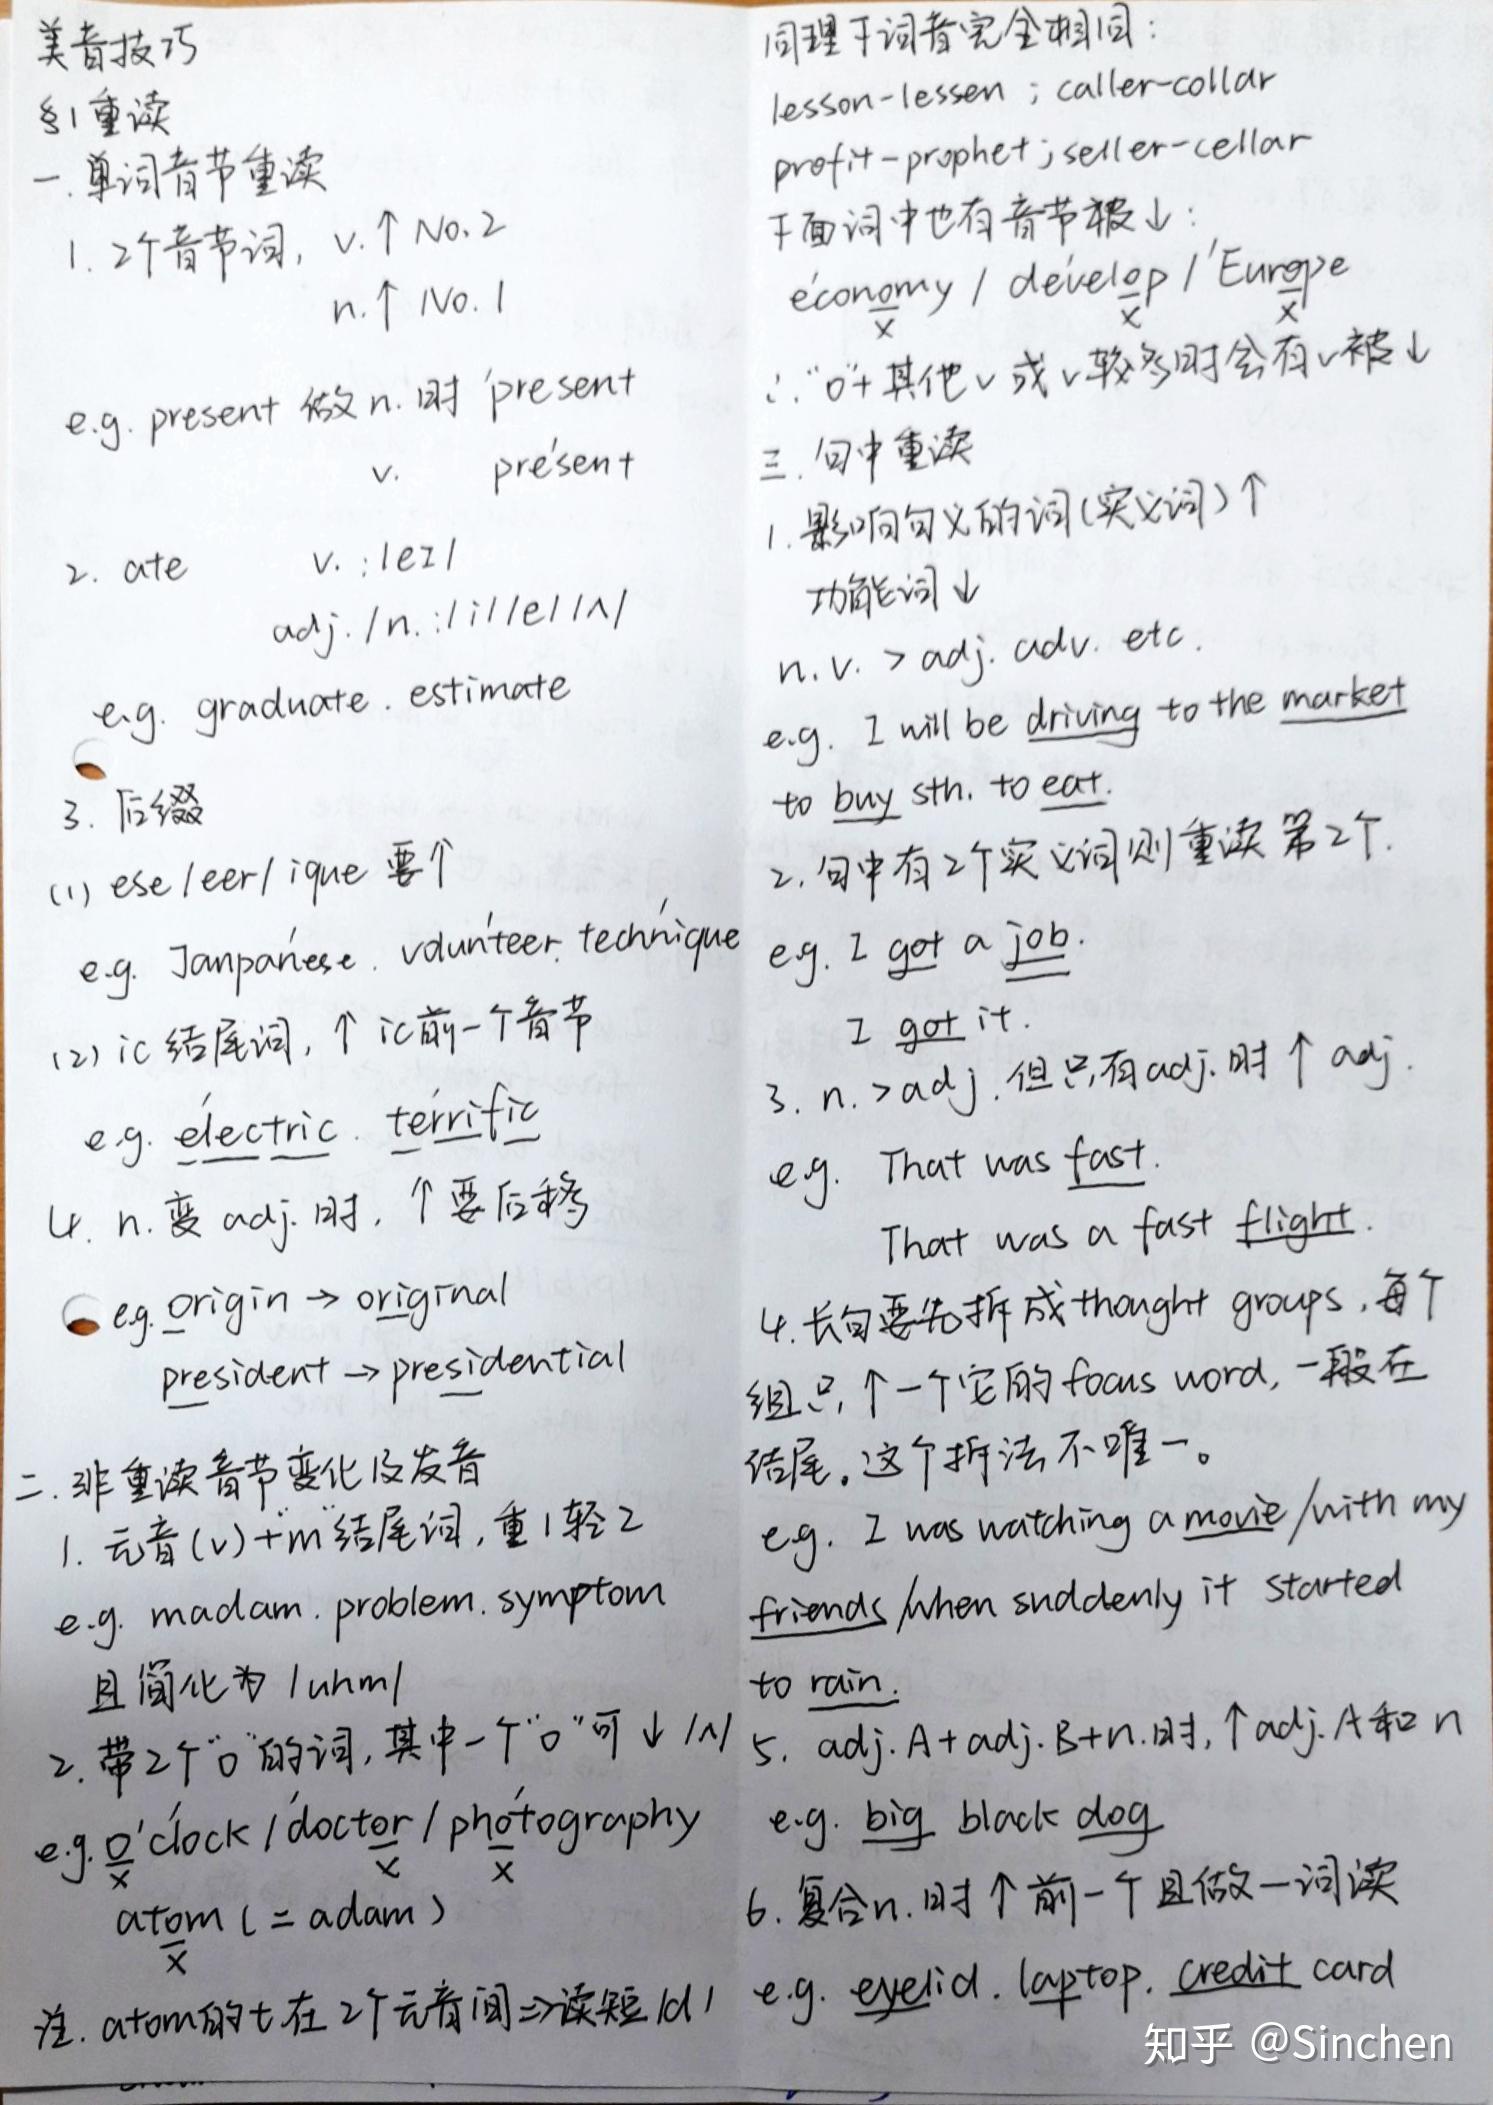 美音技巧
§1 重读
一.单词音节重读
1. 2个音节词, v.↑ No.2
n.↑ No.1
e.g. present 做n.时 'present
v. pre'sent
2. ate v. :/eɪ/
adj./n. :/i//e//ʌ/
e.g. graduate. estimate
3. 后缀
(1) ese/eer/ique 要↑
e.g. Janpan'ese. volun'teer. tech'nique
(2) ic结尾词, ↑ ic前一个音节
e.g. e'lectric. ter'rific
4. n.变adj.时, ↑要后移
e.g. origin → original
president → presidential
二.非重读音节变化及发音
1. 元音(v)+"m"结尾词, 重1轻2
e.g. madam. problem. symptom
且简化为 /uhm/
2. 带2个"o"的词, 其中一个"o"可↓/ʌ/
e.g. o'clock / 'doctor / pho'tography
x x x
atom (= adam)
x
注. atom的t在2个元音间⇒读短/d/
同理下词音完全相同:
lesson-lessen ; caller-collar
profit-prophet ; seller-cellar
下面词中也有音节被↓:
e'conomy / de'velop / 'Europe
x x x
∴"o"+其他v或v较多时会有v被↓
三.句中重读
1. 影响句义的词(实义词)↑
功能词↓
n. v. > adj. adv. etc.
e.g. I will be driving to the market
to buy sth. to eat.
2. 句中有2个实义词则重读第2个.
e.g. I got a job.
I got it.
3. n. > adj. 但只有adj.时↑adj.
e.g. That was fast.
That was a fast flight.
4. 长句要先拆成thought groups, 每个
组只↑一个它的focus word, 一般在
结尾。这个拆法不唯一。
e.g. I was watching a movie /with my
friends /when suddenly it started
to rain.
5. adj.A+adj.B+n.时, ↑adj.A和n
e.g. big black dog
6. 复合n.时↑前一个且做一词读
e.g. eyelid. laptop. credit card
知乎 @Sinchen